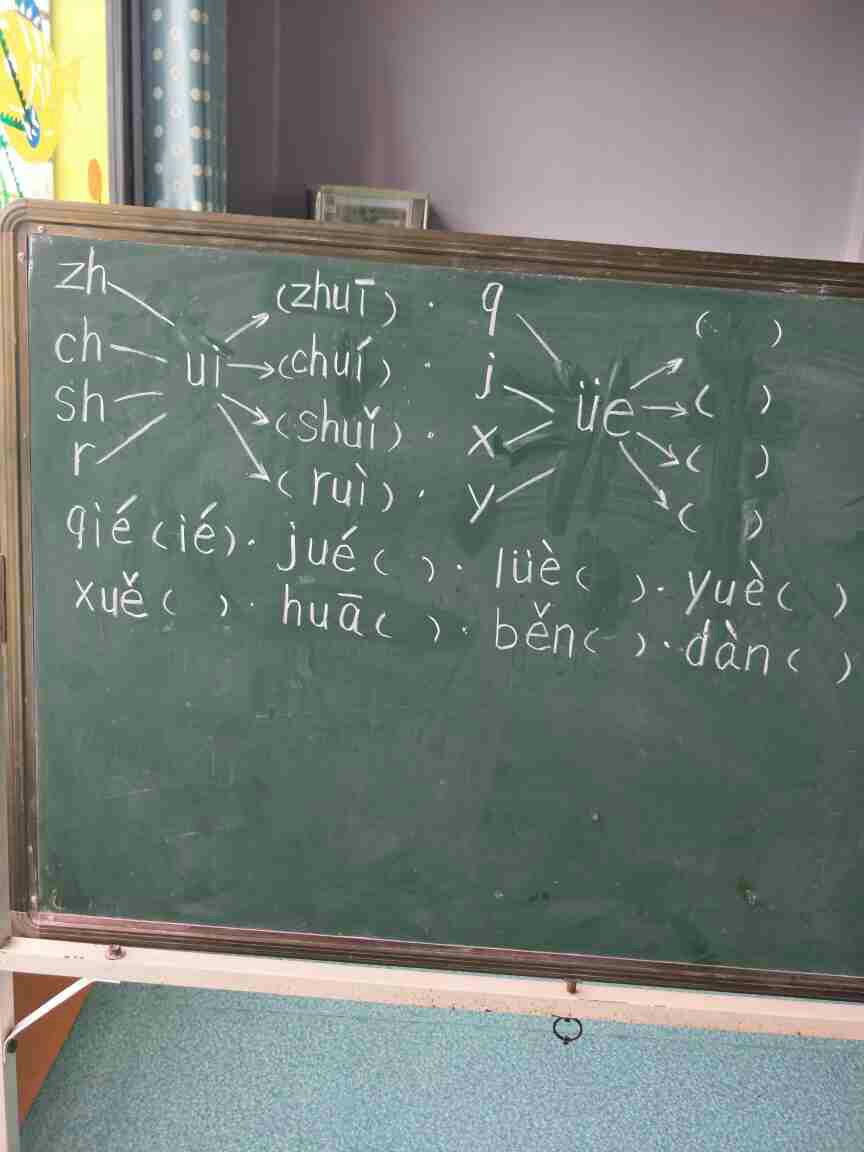 zh (zhuī) · q ( )
ch ui (chuí) · j üe ( )
sh (shuǐ) · x ( )
r (ruì) · y ( )
qié (ié) · jué ( ) · lüè ( ) · yuè ( )
xuě ( ) · huā ( ) · běn ( ) · dàn ( )